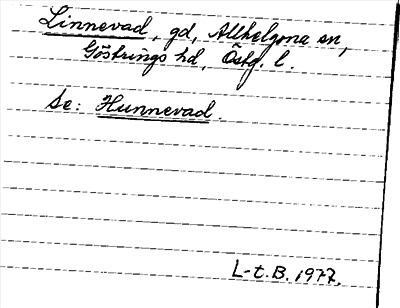 Linnevad, gd, Allhelgona sn,
Göstrings hd, Östg. l.
Se: Hunnevad.
L-t. B. 1977.